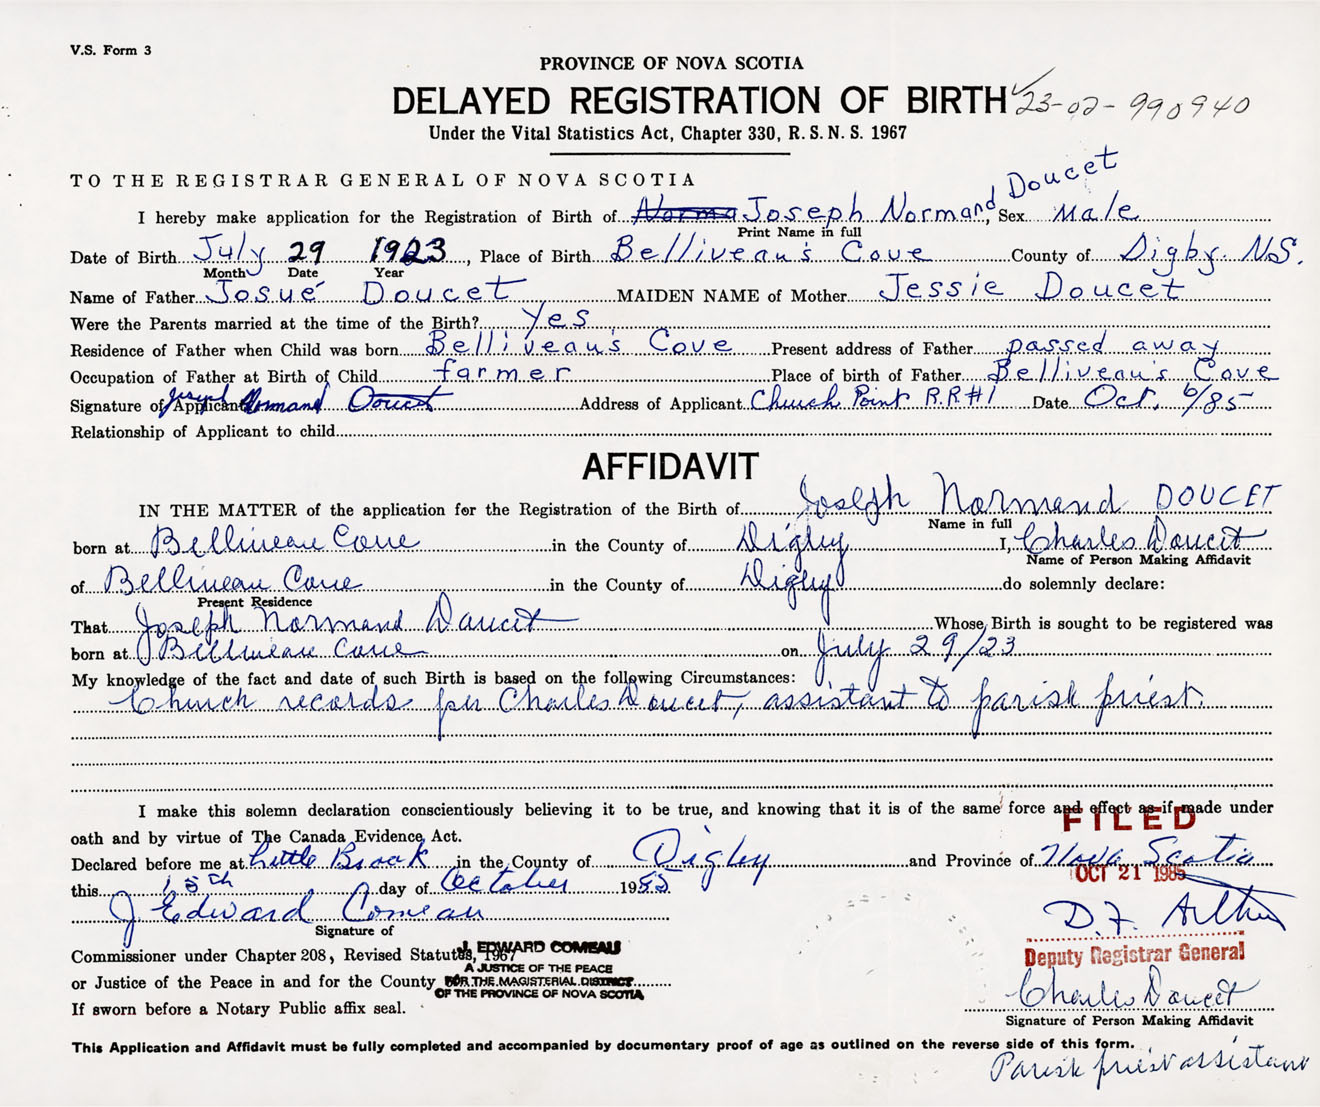 V.S. Form 3
PROVINCE OF NOVA SCOTIA
DELAYED REGISTRATION OF BIRTH 23-02-990940
Under the Vital Statistics Act, Chapter 330, R.S.N.S. 1967
TO THE REGISTRAR GENERAL OF NOVA SCOTIA
I hereby make application for the Registration of Birth of Norma Joseph Normand Doucet, Sex Male
Print Name in full
Date of Birth July 29 1923, Place of Birth Belliveau's Cove County of Digby. N.S.
Month Date Year
Name of Father Josué Doucet MAIDEN NAME of Mother Jessie Doucet
Were the Parents married at the time of the Birth? Yes
Residence of Father when Child was born Belliveau's Cove Present address of Father passed away
Occupation of Father at Birth of Child farmer Place of birth of Father Belliveau's Cove
Signature of Applicant Joseph Normand Doucet Address of Applicant Church Point R.R#1 Date Oct. 6/85
Relationship of Applicant to child
AFFIDAVIT
IN THE MATTER of the application for the Registration of the Birth of Joseph Normand DOUCET
Name in full
born at Belliveau Cove in the County of Digby I, Charles Doucet
Name of Person Making Affidavit
of Belliveau Cove in the County of Digby do solemnly declare:
Present Residence
That Joseph Normand Doucet Whose Birth is sought to be registered was
born at Belliveau Cove on July 29/23
My knowledge of the fact and date of such Birth is based on the following Circumstances:
Church records per Charles Doucet, assistant to parish priest.
I make this solemn declaration conscientiously believing it to be true, and knowing that it is of the same force and effect as if made under
oath and by virtue of The Canada Evidence Act.
FILED
Declared before me at Little Brook in the County of Digby and Province of Nova Scotia
OCT 21 1985
this 15th day of October 1985
J. Edward Comeau
D.F. Arthur
Signature of
Deputy Registrar General
Commissioner under Chapter 208, Revised Statutes, 1967
or Justice of the Peace in and for the County
J. EDWARD COMEAU
A JUSTICE OF THE PEACE
FOR THE MAGISTERIAL DISTRICT
OF THE PROVINCE OF NOVA SCOTIA
Charles Doucet
If sworn before a Notary Public affix seal.
Signature of Person Making Affidavit
This Application and Affidavit must be fully completed and accompanied by documentary proof of age as outlined on the reverse side of this form.
Parish priest assistant